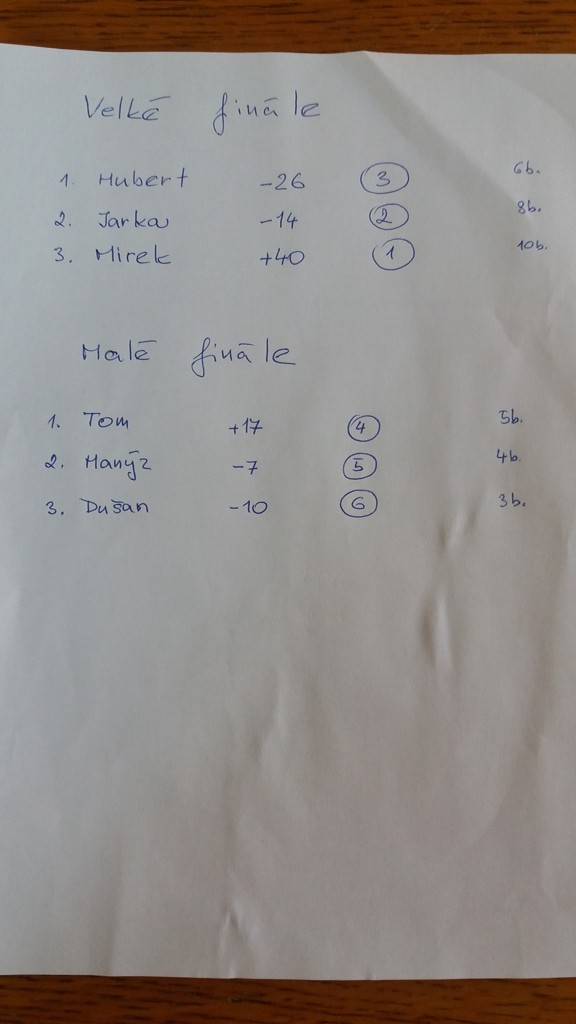 Velké finále
1. Hubert -26 3 6b.
2. Jarka -14 2 8b.
3. Mirek +40 1 10b.
Malé finále
1. Tom +17 4 5b.
2. Manýz -7 5 4b.
3. Dušan -10 6 3b.